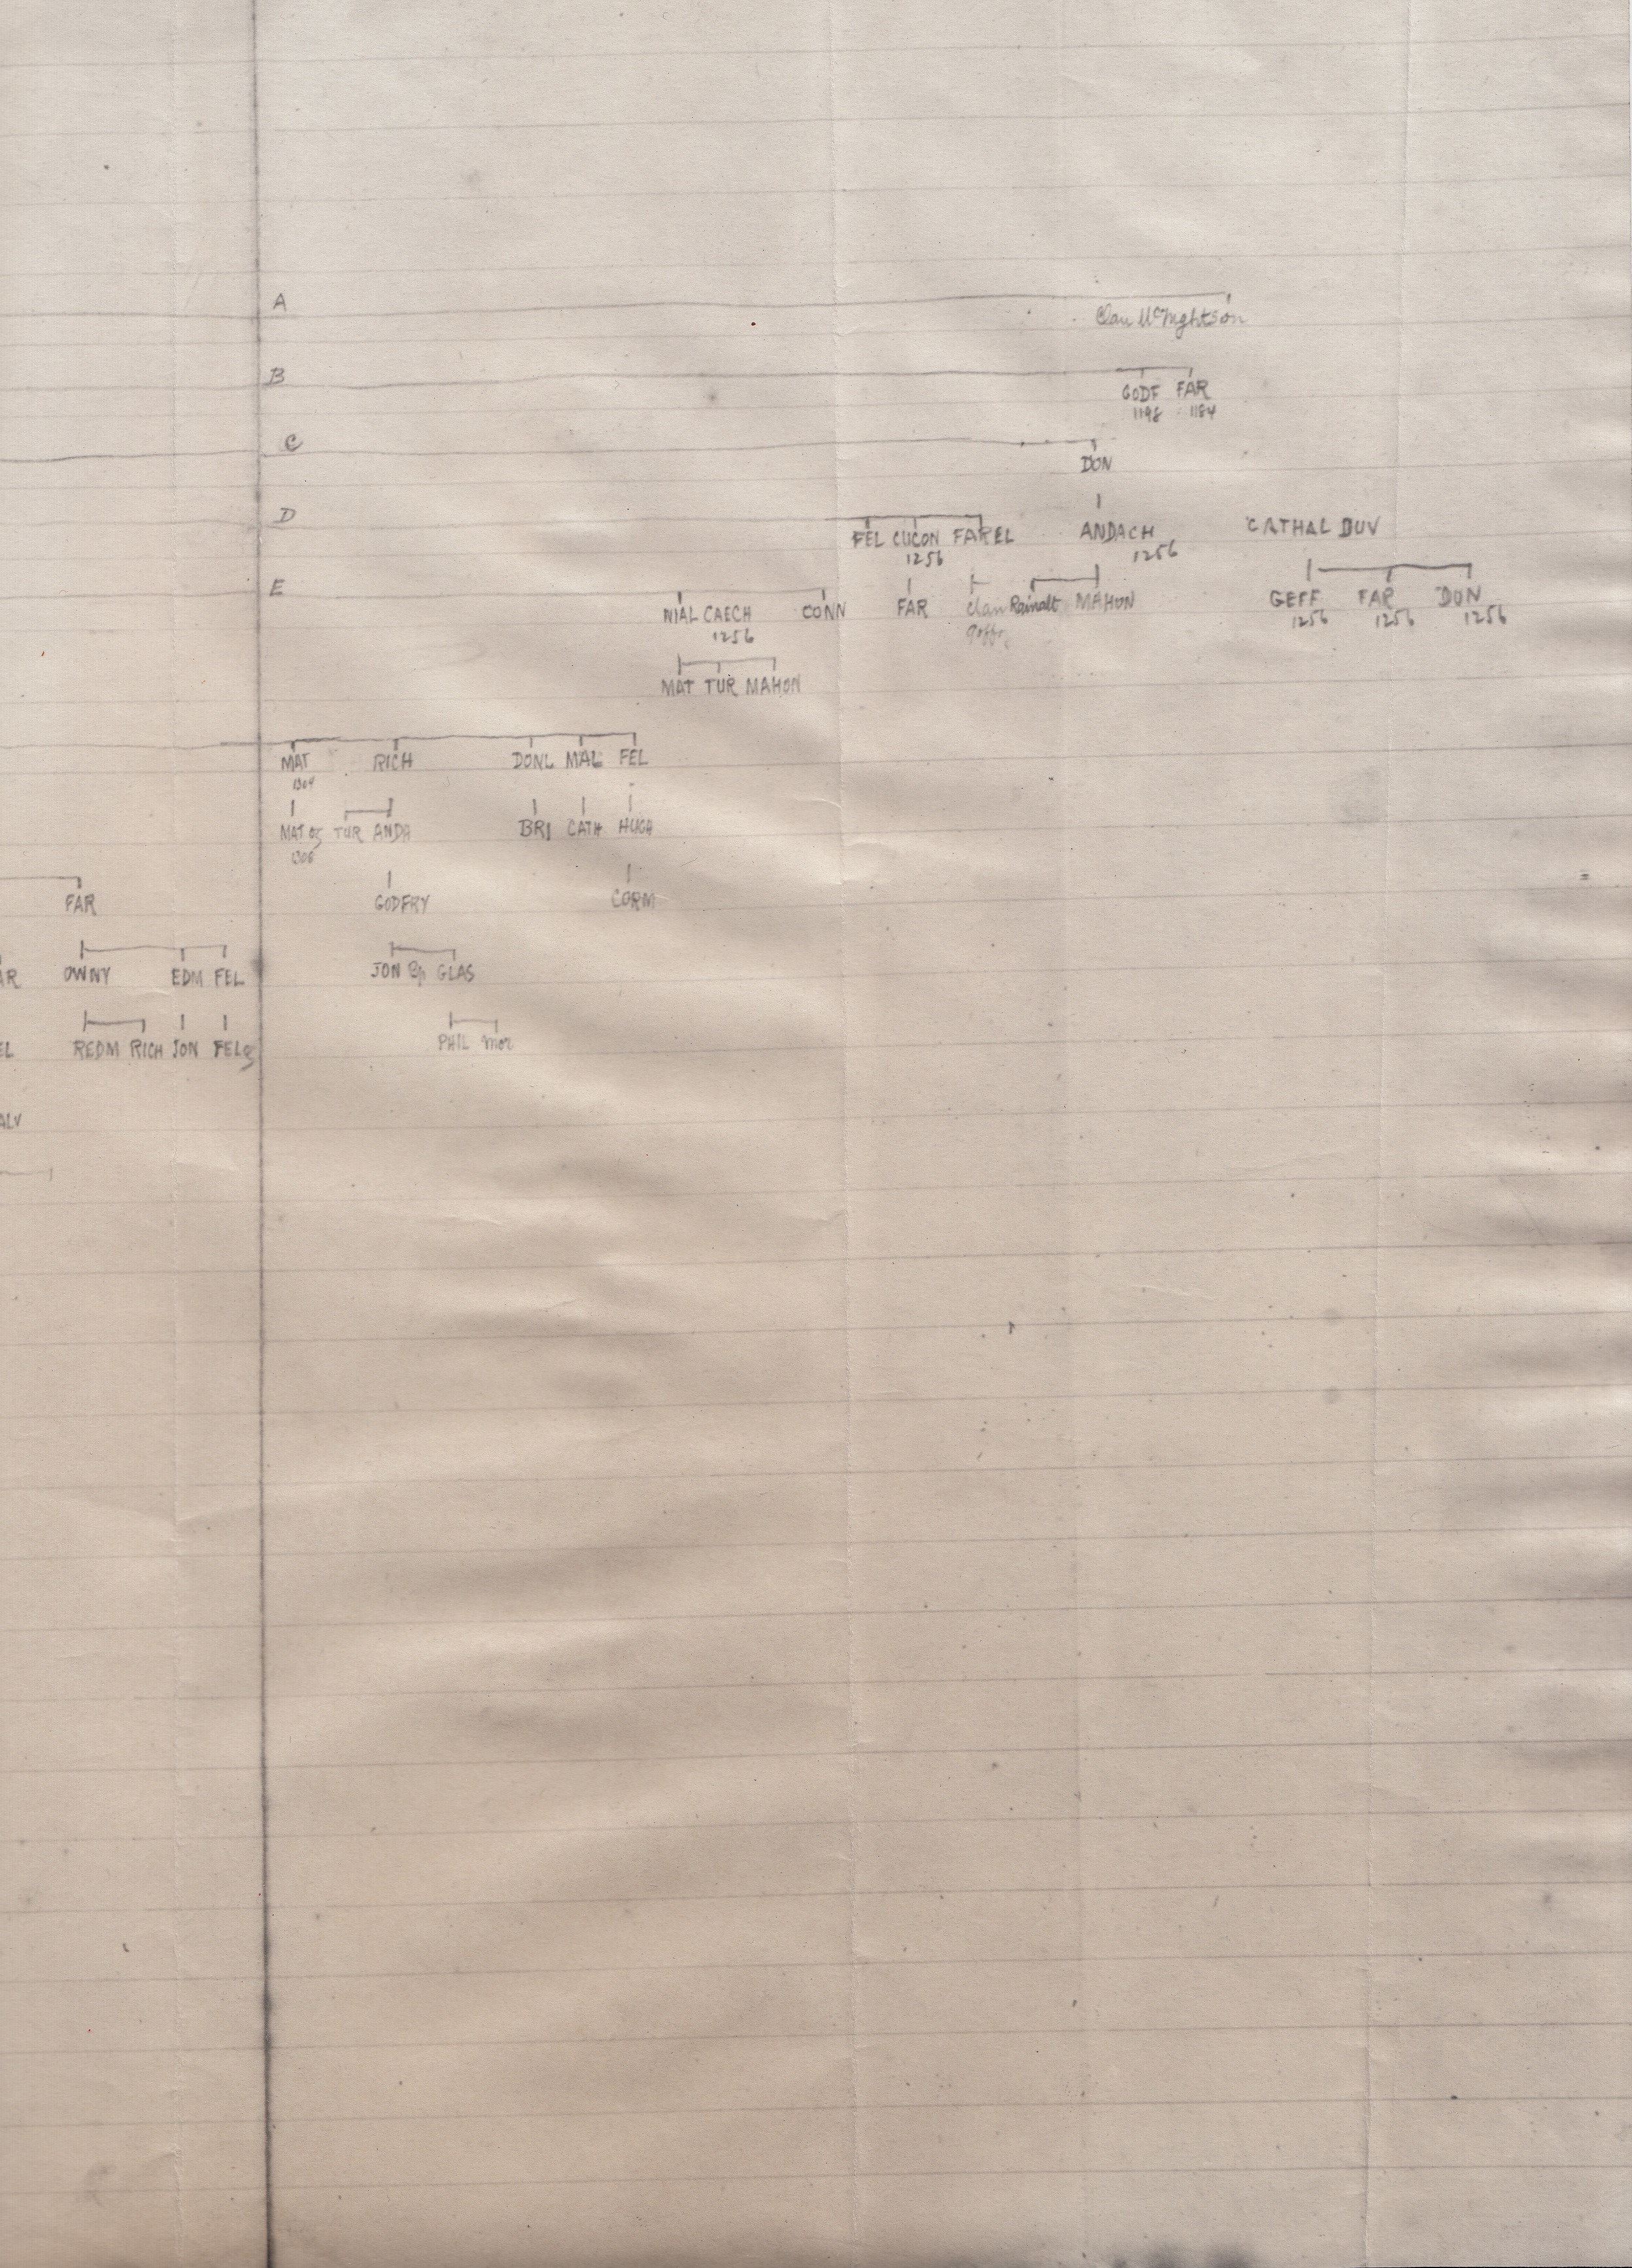 A
Clan
B
GODF FAR
1198 1184
C
DON
D
FEL CUCON FAREL ANDACH CATHAL DUV
1256 1256
E
NIAL CAECH CONN FAR Clan Rainalt MAHON GEFF FAR DON
1256 1256 1256 1256
MAT TUR MAHON
MAT RICH DONL MAL FEL
1304
MAT og TUR ANDA BRI CATH HUGH
1306
FAR GODFRY CORM
AR OWNY EDM FEL JON Bp GLAS
EL REDM RICH JON FEL PHIL Mor
ALV